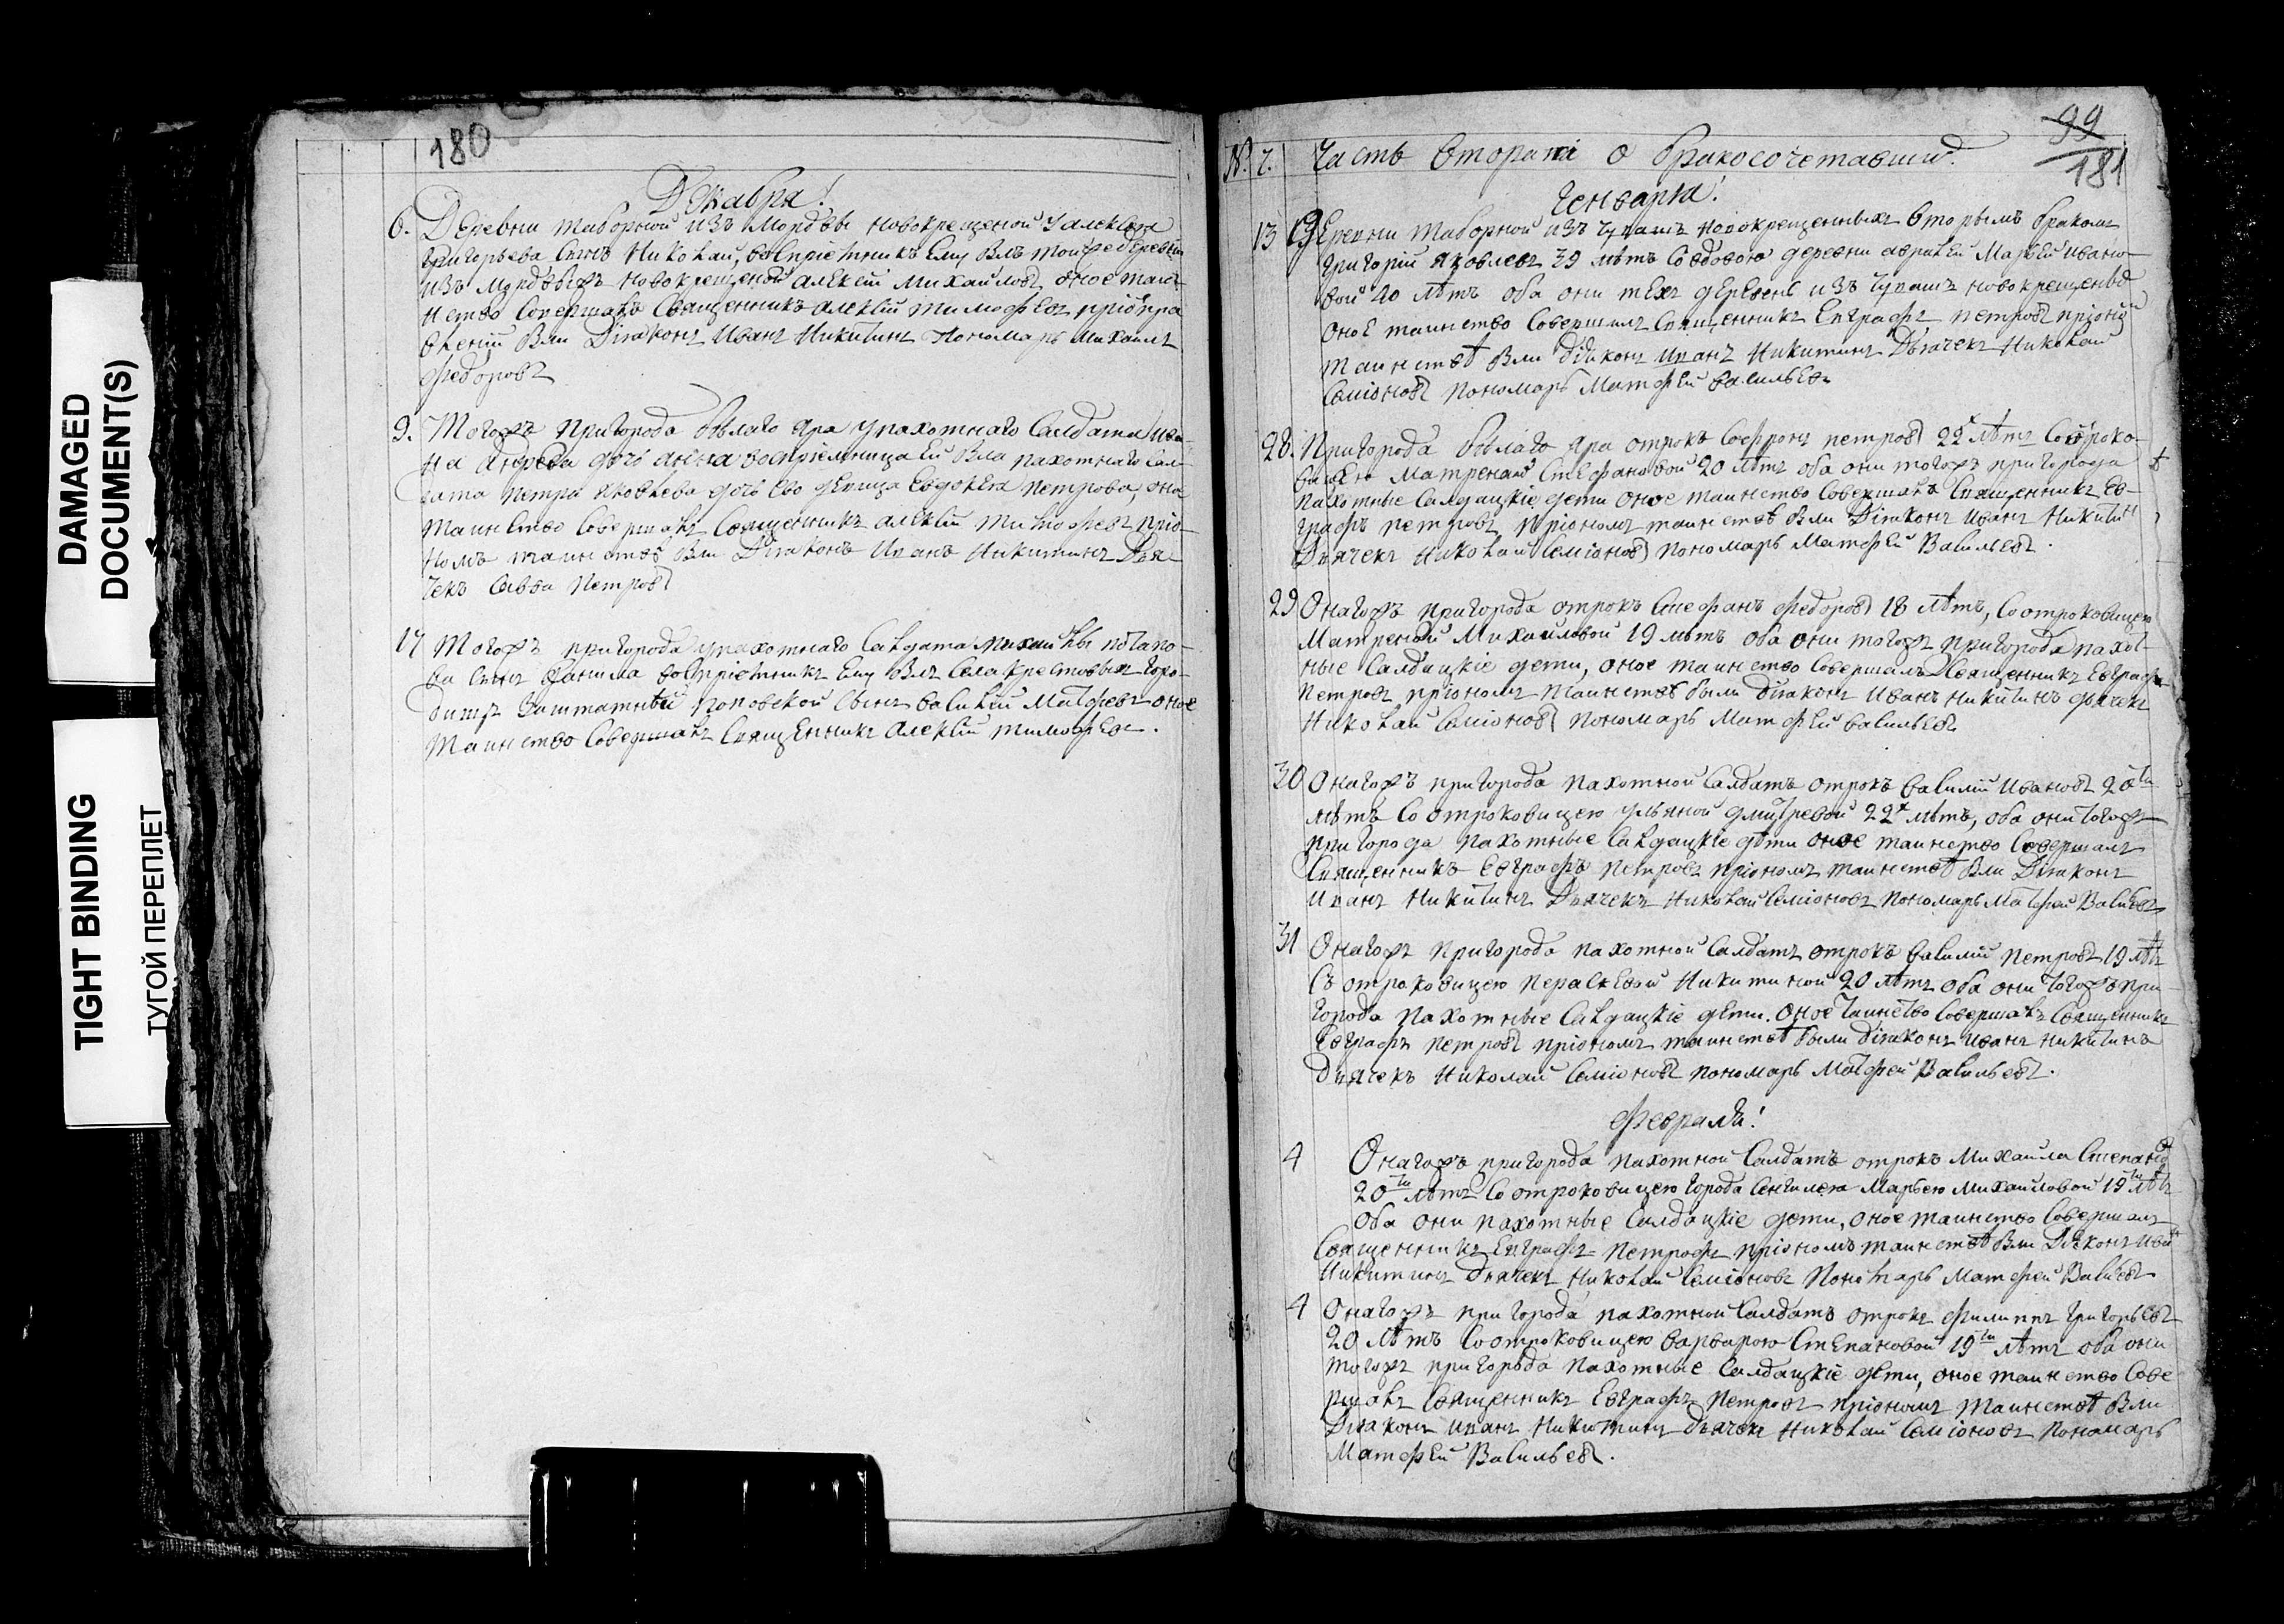 DAMAGED
DOCUMENT(S)
TIGHT BINDING
ТУГОЙ ПЕРЕПЛЕТ
180
Декабря!
6. Деревни Таборной изъ Мордвы новокрещеной у Алексея
Григорьева сынъ Николай, воспріемникъ ему былъ той же деревни
изъ Мордвы жъ новокрещеной Алексій Михайловъ оное таин-
ство совершалъ священникъ Алексій Тимофеев при отпра
влении были Діаконъ Иванъ Никитинъ Пономарь Михаилъ
Федоровъ
9. Тогожъ пригорода Белаго Яра у пахотнаго салдата Ива-
на Андреева дочь Анна воспріемницей ей была пахотнаго сал-
дата Петра Яковлева дочь ево девица Евдокея Петрова, оно
таинство совершалъ священникъ Алексій Тимофеев при о-
номъ таинстве были Діаконъ Иванъ Никитинъ Дья-
чекъ Савва Петровъ
17 Тогожъ пригорода у пахотнаго салдата Михайлы Потапо-
ва сынъ Данила воспріемникъ ему был села Крестовыхъ Горо-
дищъ заштатный поповской сынъ Василей Матфеевъ оное
таинство совершалъ священникъ Алексій Тимофеев.
99
181
№. ч. Часть вторая о бракосочетавших.
Генваря!
13 Деревни Таборной изъ Чувашъ новокрещенныхъ вторымъ бракомъ
Григорій Яковлевъ 39 лѣтъ со вдовою деревни Марьей Ивано-
вой 40 лѣтъ оба они техъ деревень изъ Чувашъ новокрещеные
Оное таинство совершалъ священникъ Евграфъ Петровъ при оном
таинстве были діаконъ Иванъ Никитинъ Дьячекъ Николай
Семіоновъ Пономарь Матфей Васильевъ
28. Пригорода Белаго Яра отрокъ Софронъ Петровъ 22х лѣтъ со отроко-
вицею Матреною Стефановой 20 лѣтъ оба они тогожъ пригорода
пахотные салдацкіе дети оное таинство совершалъ священникъ Ев-
графъ Петровъ при ономъ таинстве были Діаконъ Иванъ Никитин
Дьячекъ Николай Семіоновъ Пономарь Матфей Васильевъ.
29 Онагожъ пригорода отрокъ Стефанъ Федоровъ 18 лѣтъ, со отроковицею
Матреной Михайловой 19 лѣтъ оба они тогожъ пригорода пахот-
ные салдацкіе дети, оное таинство совершалъ священникъ Евграфъ
Петровъ при ономъ таинстве были діаконъ Иванъ Никитинъ дьячекъ
Николай Семіоновъ Пономарь Матфей Васильевъ
30 Онагожъ пригорода пахотной салдатъ отрокъ Василій Ивановъ 20ти
лѣтъ со отроковицею Ульяной Дмитревой 22х лѣтъ, оба они тогожъ
пригорода пахотные салдацкіе дѣти оное таинство совершалъ
священникъ Евграфъ Петровъ при ономъ таинстве были Діаконъ
Иванъ Никитинъ Дьячекъ Николай Семіоновъ Пономарь Матфей Васильевъ
31 Онагожъ пригорода пахотной салдатъ отрокъ Василій Петровъ 19 лѣтъ
съ отроковицею Пераскевой Никитиной 20 лѣтъ оба они тогожъ при-
города пахотные салдацкіе дети. Оное таинство совершалъ священникъ
Евграфъ Петровъ при ономъ таинстве были діаконъ Иванъ Никитинъ
Дьячекъ Николай Семіоновъ Пономарь Матфей Васильевъ.
Февраля!
4 Онагожъ пригорода пахотной салдатъ отрокъ Михайла Степановъ
20ти лѣтъ со отроковицею города Сенгилея Марьею Михайловой 19ти лѣтъ
оба они пахотные салдацкіе дети, оное таинство совершалъ
священникъ Евграфъ Петровъ при ономъ таинстве были Діаконъ Иван
Никитинъ Дьячекъ Николай Семіоновъ Пономарь Матфей Васильевъ
4 Онагожъ пригорода пахотной салдатъ отрокъ Филиппъ Григорьевъ
20 лѣтъ со отроковицею Варварою Степановой 19ти лѣтъ оба они
тогожъ пригорода пахотные салдацкіе дети, оное таинство сове
ршалъ священникъ Евграфъ Петровъ при ономъ таинстве были
Діаконъ Иванъ Никитинъ Дьячекъ Николай Семіоновъ Пономарь
Матфей Васильевъ.